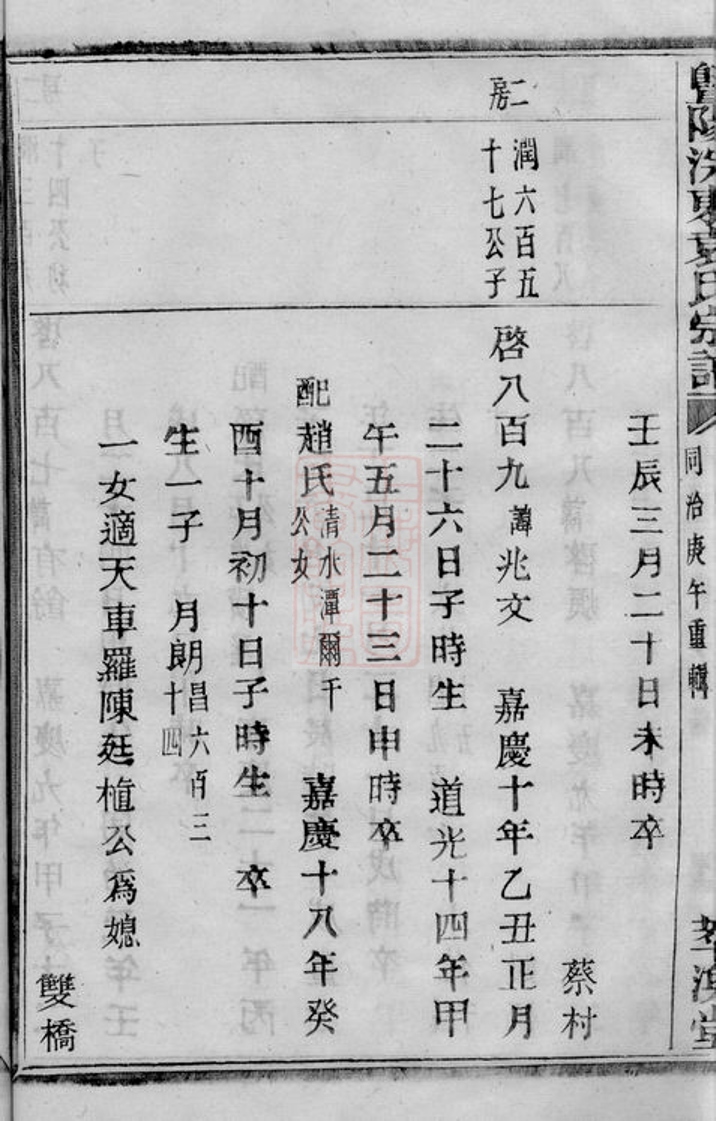 暨陽洗東袁氏宗譜
同治庚午重輯
萃渙堂
壬辰三月二十日未時卒
蔡村
二房
潤六百五
十七公子
啓八百九 諱 兆文 嘉慶十年乙丑正月
二十六日子時生 道光十四年甲
午五月二十三日申時卒
配趙氏 清水潭爾干公女 嘉慶十八年癸
酉十月初十日子時生 卒
生一子 月朗 昌六百三十四
一女適天車羅陳廷植公爲媳
雙橋